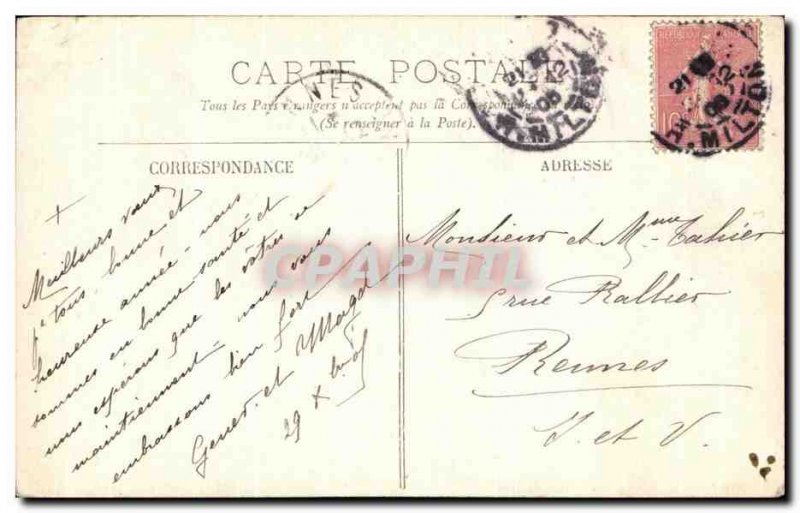 CARTE POSTALE
Tous les Pays étrangers n'acceptent pas la Correspondance
(Se renseigner à la Poste).
CORRESPONDANCE
ADRESSE
Meilleurs vœux
pr tous. bonne et
heureuse année - nous
sommes en bonne santé et
nous espérons que les vôtres se
maintiennent - nous vous
embrassons bien fort
et Magd
29 X
Monsieur et Mme
5 rue Rallier
Rennes
I. et V.
CPAPHIL
NES
21
12
05
MILTON
REPUBLIQUE FRANCAISE
10
21
12
05
MILTON